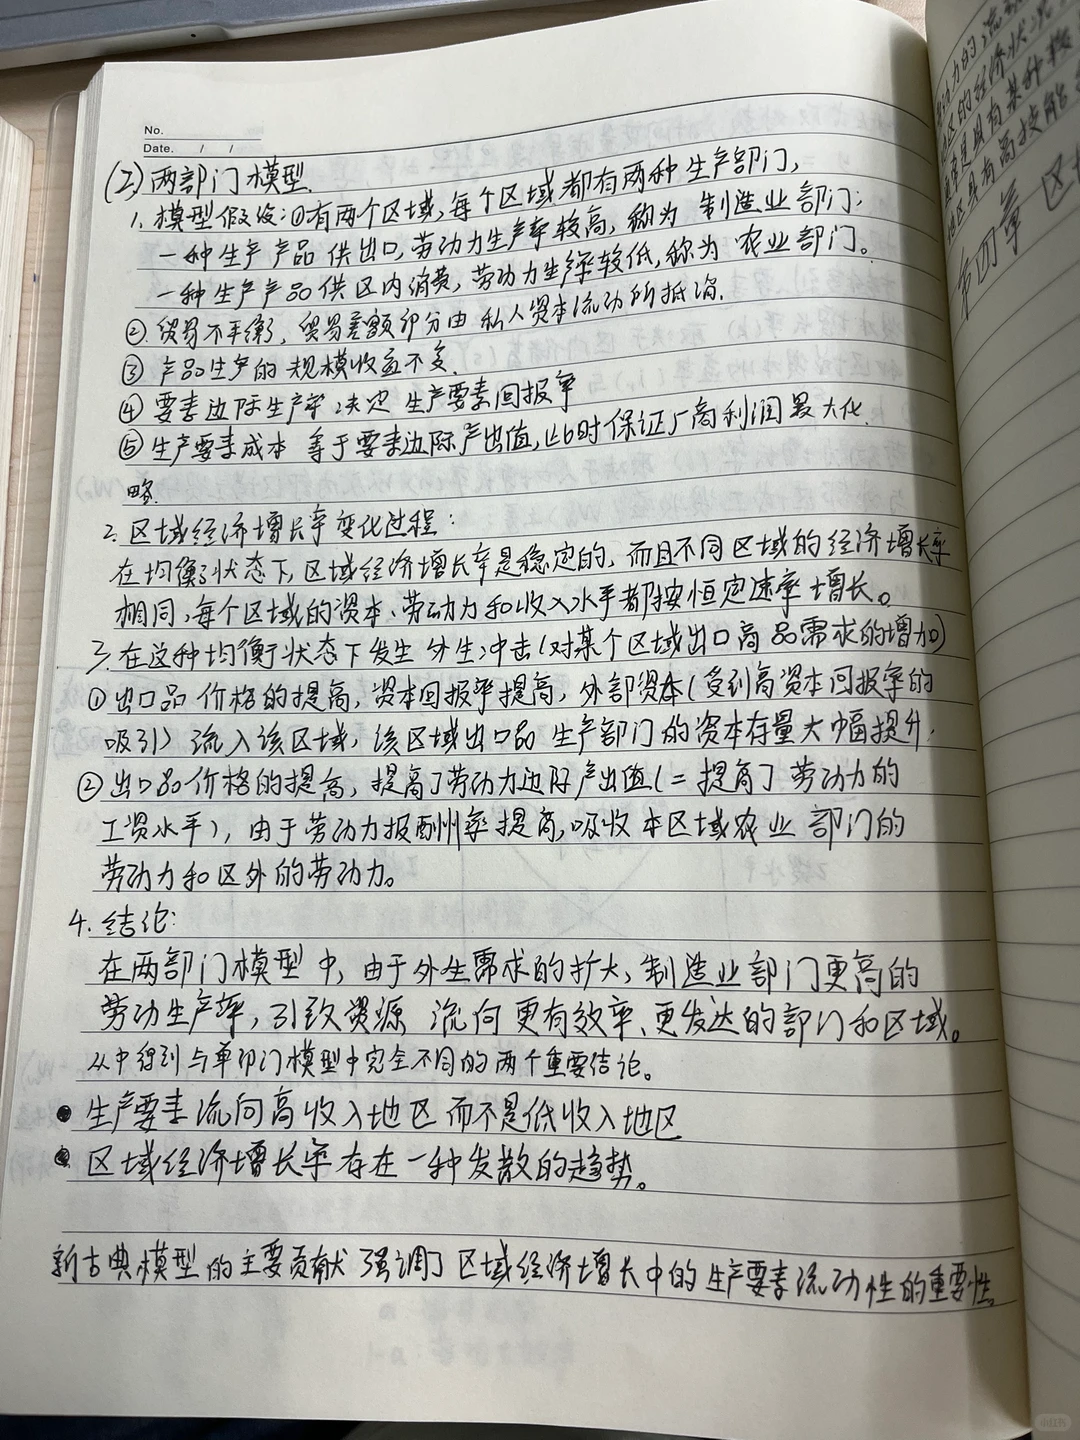 No.
Date. / /
(2) 两部门模型.
1. 模型假设:①有两个区域,每个区域都有两种生产部门,
一种生产产品供出口,劳动力生产率较高,称为 制造业部门;
一种生产产品供区内消费,劳动力生产率较低,称为 农业部门。
② 贸易不平衡, 贸易差额部分由 私人资本流动所抵消.
③ 产品生产的 规模收益不变.
④ 要素边际生产率 决定 生产要素回报率
⑤ 生产要素成本 等于要素边际产出值,此时保证厂商利润最大化.
略.
2. 区域经济增长率变化过程:
在均衡状态下,区域经济增长率是稳定的,而且不同区域的经济增长率
相同,每个区域的资本、劳动力和收入水平都按恒定速率增长。
3. 在这种均衡状态下发生 外生冲击(对某个区域出口商品需求的增加)
① 出口品价格的提高,资本回报率提高,外部资本(受到高资本回报率的
吸引) 流入该区域,该区域出口品生产部门的资本存量大幅提升.
② 出口品价格的提高,提高了劳动力边际产出值(=提高了劳动力的
工资水平),由于劳动力报酬率提高,吸收本区域农业部门的
劳动力和区外的劳动力。
4. 结论:
在两部门模型中,由于外生需求的扩大,制造业部门更高的
劳动生产率,引致资源 流向更有效率、更发达的部门和区域。
从中得到与单部门模型中完全不同的两个重要结论。
• 生产要素流向高收入地区而不是低收入地区
• 区域经济增长率存在一种发散的趋势。
新古典模型的主要贡献 强调了区域经济增长中的生产要素流动性的重要性.
动力的流
区的经济状况
具有某种
地区具有高技能
第四章 区
小红书